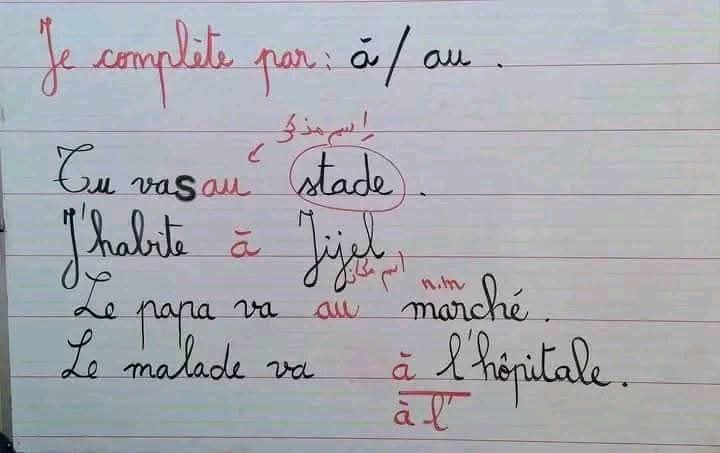 Je complète par : à / au .
إسم مذكر
Tu vas au stade .
J'habite à Jijel
اسم مكان n.m
Le papa va au marché .
Le malade va à l'hôpitale .
à l'